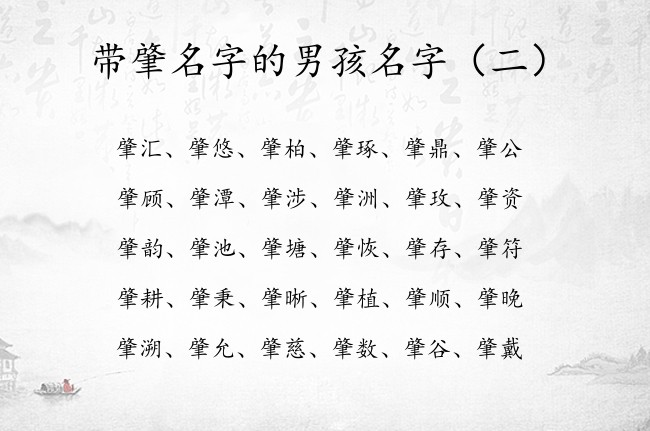 带肇名字的男孩名字（二）
肇汇、肇悠、肇柏、肇琢、肇鼎、肇公
肇顾、肇潭、肇涉、肇洲、肇玫、肇资
肇韵、肇池、肇塘、肇恢、肇存、肇符
肇耕、肇秉、肇晰、肇植、肇顺、肇晚
肇溯、肇允、肇慈、肇数、肇谷、肇戴